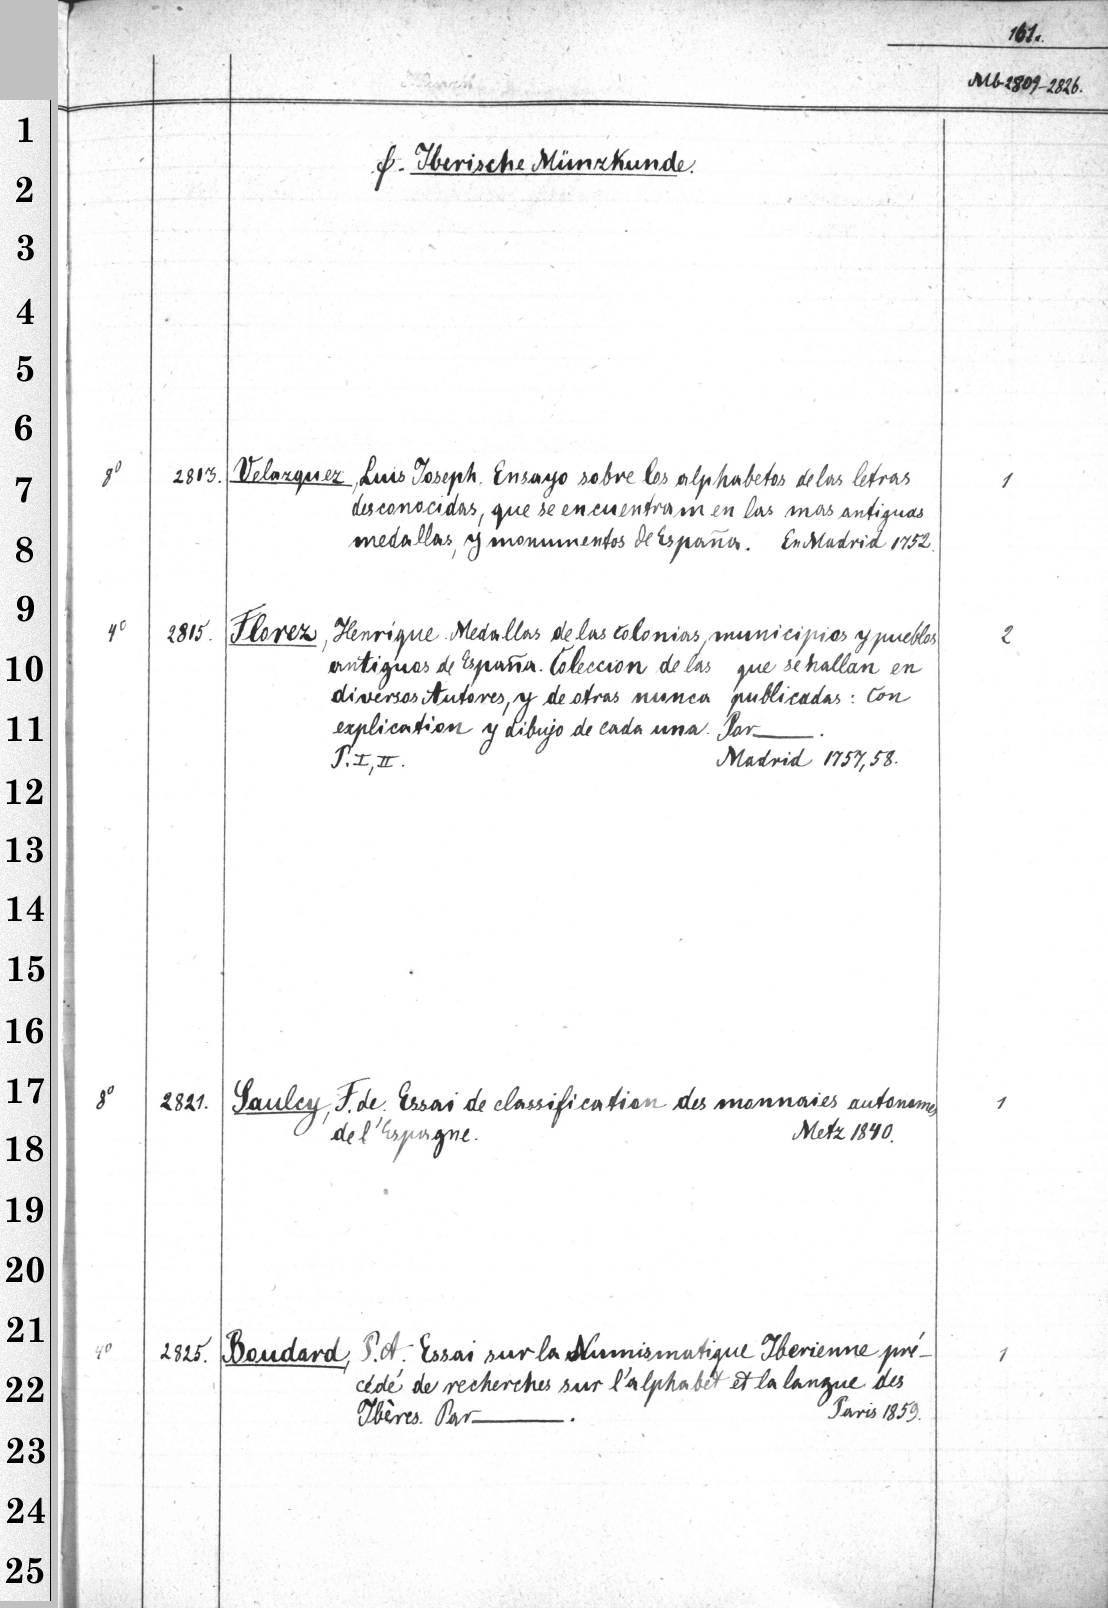 161.
Mb 2809-2826.
f. Iberische Münzkunde.
8° 2813. Velazquez, Luis Joseph. Ensayo sobre los alphabetos de las letras 1
desconocidas, que se encuentram en las mas antiguas
medallas, y monumentos de España. En Madrid 1752.
4° 2815. Florez, Henrique. Medallas de las colonias, municipios y pueblos 2
antiguos de España. Coleccion de las que se hallan en
diversos Autores, y de otras nunca publicadas: con
explication y dibujo de cada una. Par ____.
P. I, II. Madrid 1757, 58.
8° 2821. Saulcy, F. de. Essai de classification des monnaies autonomes 1
de l'Espagne. Metz 1840.
4° 2825. Boudard, P. A. Essai sur la Numismatique Iberienne pré- 1
cédé de recherches sur l'alphabet et la langue des
Ibères. Par ____. Paris 1859.
1
2
3
4
5
6
7
8
9
10
11
12
13
14
15
16
17
18
19
20
21
22
23
24
25